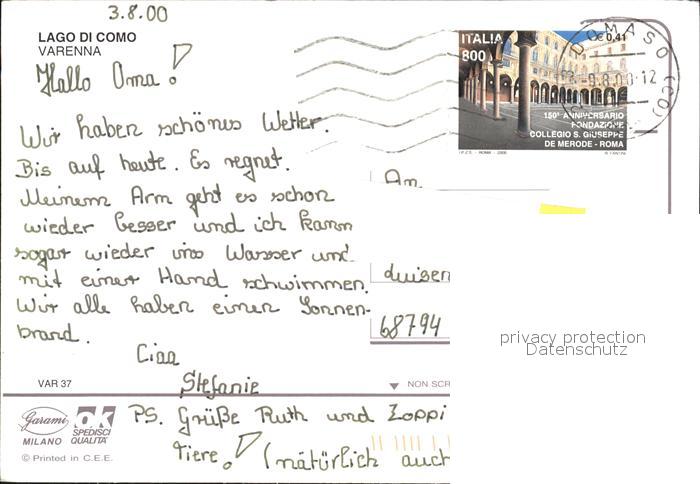 3.8.00
LAGO DI COMO
VARENNA
Hallo Oma!
Wir haben schönes Wetter.
Bis auf heute. Es regnet.
Meinem Arm geht es schon
wieder besser und ich kann
sogar wieder ins Wasser und
mit einer Hand schwimmen.
Wir alle haben einen Sonnen-
brand.
Ciao
Stefanie
PS. Grüße Ruth und Zoppi
Tiere! (natürlich auch
VAR 37
Garami
MILANO
ok
SPEDISCI
QUALITÀ
© Printed in C.E.E.
ITALIA
800
€ 0,41
150° ANNIVERSARIO
FONDAZIONE
COLLEGIO S. GIUSEPPE
DE MERODE - ROMA
I.P.Z.S. - ROMA - 2000
DOMASO (CO)
8.00-12
An
68794
NON SCR
privacy protection
Datenschutz